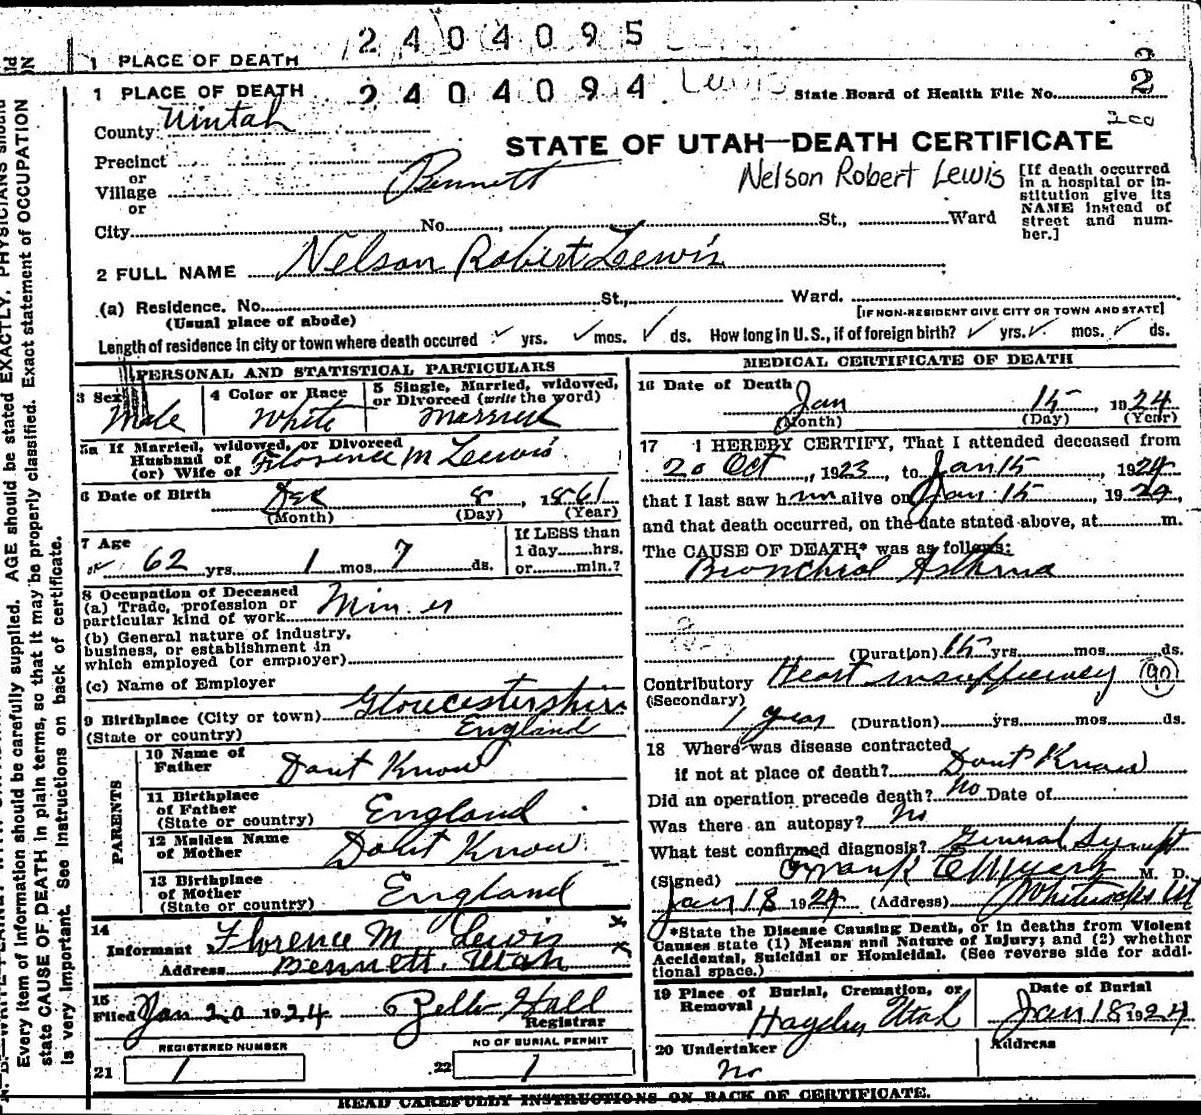 2404095
1 PLACE OF DEATH
1 PLACE OF DEATH 2404094 Lewis State Board of Health File No. 2
County Uintah
STATE OF UTAH—DEATH CERTIFICATE
Precinct
or
Village Bennett
or
Nelson Robert Lewis
[If death occurred
in a hospital or in-
stitution give its
NAME instead of
street and num-
ber.]
City No. St., Ward
2 FULL NAME Nelson Robert Lewis
(a) Residence. No. St., Ward.
(Usual place of abode) [IF NON-RESIDENT GIVE CITY OR TOWN AND STATE]
Length of residence in city or town where death occured ✓ yrs. ✓ mos. ✓ ds. How long in U.S., if of foreign birth? ✓ yrs. ✓ mos. ✓ ds.
PERSONAL AND STATISTICAL PARTICULARS
3 Sex Male
4 Color or Race White
5 Single, Married, widowed,
or Divorced (write the word)
Married
5a If Married, widowed, or Divorced
Husband of
(or) Wife of Florence M Lewis
6 Date of Birth Dec 8, 1861
(Month) (Day) (Year)
7 Age
62 yrs. 1 mos. 7 ds.
If LESS than
1 day hrs.
or min.?
8 Occupation of Deceased
(a) Trade, profession or
particular kind of work Miner
(b) General nature of industry,
business, or establishment in
which employed (or employer)
(c) Name of Employer
9 Birthplace (City or town) Gloucestershire
(State or country) England
PARENTS
10 Name of
Father Dont Know
11 Birthplace
of Father
(State or country) England
12 Maiden Name
of Mother Dont Know
13 Birthplace
of Mother
(State or country) England
14
Informant Florence M Lewis
Address Bennett, Utah
15
Filed Jan 20 1924 Hall
Registrar
REGISTERED NUMBER
21 1
NO OF BURIAL PERMIT
22 1
MEDICAL CERTIFICATE OF DEATH
16 Date of Death
Jan 15 1924
(Month) (Day) (Year)
17 I HEREBY CERTIFY, That I attended deceased from
20 Oct, 1923, to Jan 15, 1924
that I last saw him alive on Jan 15, 1924,
and that death occurred, on the date stated above, at m.
The CAUSE OF DEATH* was as follows:
Bronchial Asthma
(Duration) 15 yrs. mos. ds.
Contributory Heart insufficiency 90
(Secondary)
1 year (Duration) yrs. mos. ds.
18 Where was disease contracted
if not at place of death? Dont Know
Did an operation precede death? No Date of
Was there an autopsy? No
What test confirmed diagnosis? General
(Signed) Frank M. D.
Jan 18 1924 (Address) Whiterocks Ut
*State the Disease Causing Death, or in deaths from Violent
Causes state (1) Means and Nature of Injury; and (2) whether
Accidental, Suicidal or Homicidal. (See reverse side for addi-
tional space.)
19 Place of Burial, Cremation, or
Removal
Hayden Utah
Date of Burial
Jan 18 1924
20 Undertaker
No
Address
READ CAREFULLY INSTRUCTIONS ON BACK OF CERTIFICATE.
Every item of information should be carefully supplied. AGE should be stated EXACTLY. PHYSICIANS should
state CAUSE OF DEATH in plain terms, so that it may be properly classified. Exact statement of OCCUPATION
is very important. See instructions on back of certificate.